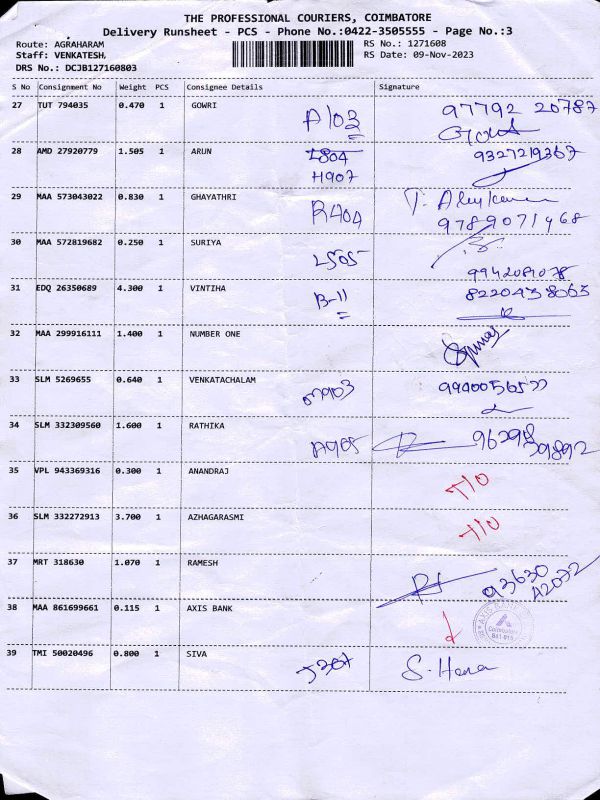 THE PROFESSIONAL COURIERS, COIMBATORE
Delivery Runsheet - PCS - Phone No.:0422-3505555 - Page No.:3
Route: AGRAHARAM RS No.: 1271608
Staff: VENKATESH, RS Date: 09-Nov-2023
DRS No.: DCJB127160803
S No Consignment No Weight PCS Consignee Details Signature
27 TUT 794035 0.470 1 GOWRI A103 97792 20787
28 AMD 27920779 1.505 1 ARUN L804 9327219367
H907
29 MAA 573043022 0.830 1 GHAYATHRI R404
9789071468
30 MAA 572819682 0.250 1 SURIYA L505
9942081078
31 EDQ 26350689 4.300 1 VINTIHA B-11 8220438065
32 MAA 299916111 1.400 1 NUMBER ONE
33 SLM 5269655 0.640 1 VENKATACHALAM
34 SLM 332309560 1.600 1 RATHIKA A905 96298
39892
35 VPL 943369316 0.300 1 ANANDRAJ
36 SLM 332272913 3.700 1 AZHAGARASMI
37 MRT 318630 1.070 1 RAMESH 93630
42072
38 MAA 861699661 0.115 1 AXIS BANK AXIS BANK
Coimbatore
39 TMI 50020496 0.800 1 SIVA J307 S. Hema